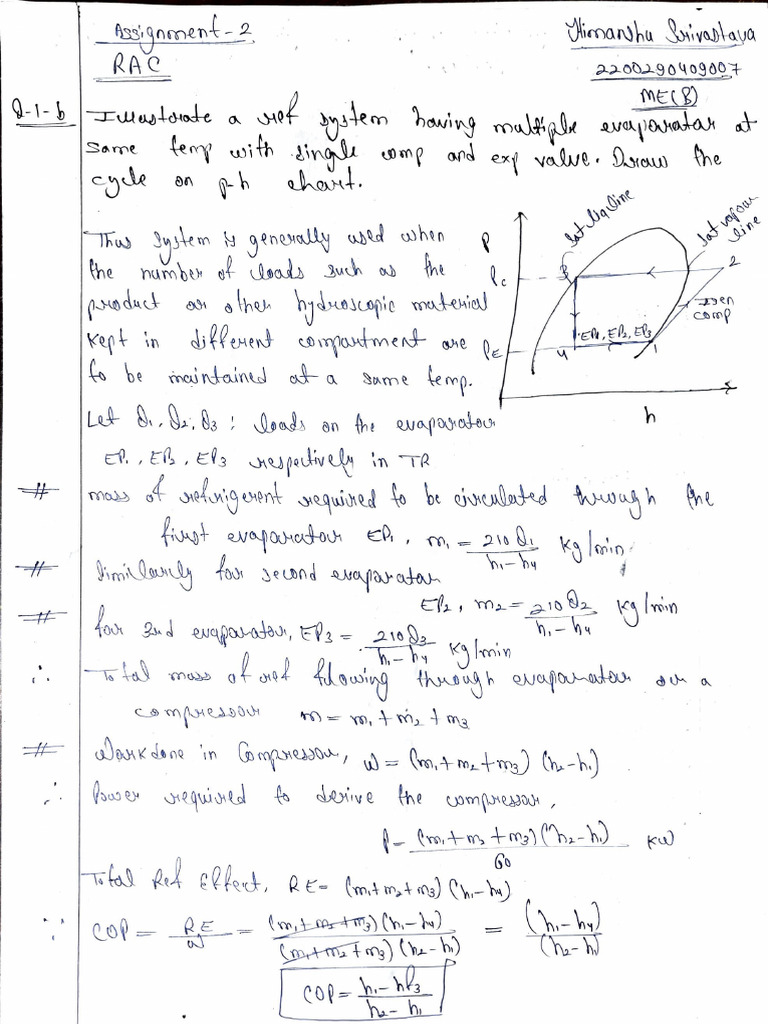 Assignment-2
Himanshu Srivastava
RAC
2200290409007
ME(B)
Q-1-b
Illustorate a ref system having multiple evaparator at
same temp with single comp and exp value. Draw the
cycle on p-h chart.
Thus system is generally used when
the number of loads such as the
product or other hydroscopic material
kept in different compartment are
to be maintained at a same temp.
P
Sat liq line
Sat vapour
line
Pc
3
2
Isen
comp
EP1, EP2, EP3
PE
4
1
h
Let Q1, Q2, Q3 : loads on the evaporator
EP1, EP2, EP3 respectively in TR
# mass of refrigerent required to be circulated through the
first evaporator EP1, m1 = 210Q1/h1-h4 Kg/min
# Similarly for second evaporator
EP2, m2 = 210Q2/h1-h4 Kg/min
# for 3rd evaporator, EP3 = 210Q3/h1-h4 Kg/min
∴ Total mass of ref fdowing through evaporator or a
compressor m = m1 + m2 + m3
# Workdone in Compressor, w = (m1+m2+m3) (h2-h1)
∴ Power required to derive the compressor,
P = (m1+m2+m3)(h2-h1)/60 KW
Total Ref Effect, RE = (m1+m2+m3)(h1-h4)
∵ COP = RE/w = (m1+m2+m3)(h1-h4)/(m1+m2+m3)(h2-h1) = (h1-h4)/(h2-h1)
COP = h1-hf3/h2-h1